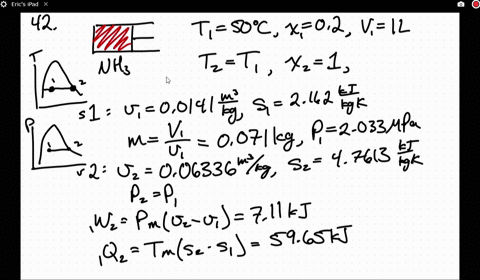 Eric's iPad
42.
T₁=50°C, x₁=0.2, V₁=1L
NH₃
T₂=T₁, x₂=1,
T
1
2
s
1: v₁=0.0141 m³/kg, s₁=2.162 kJ/kgK
m=V₁/v₁=0.071kg, P₁=2.033MPa
P
1
2
v
2: v₂=0.06336 m³/kg, s₂=4.7613 kJ/kgK
P₂=P₁
₁W₂=Pm(v₂-v₁)=7.11kJ
₁Q₂=Tm(s₂-s₁)=59.65kJ